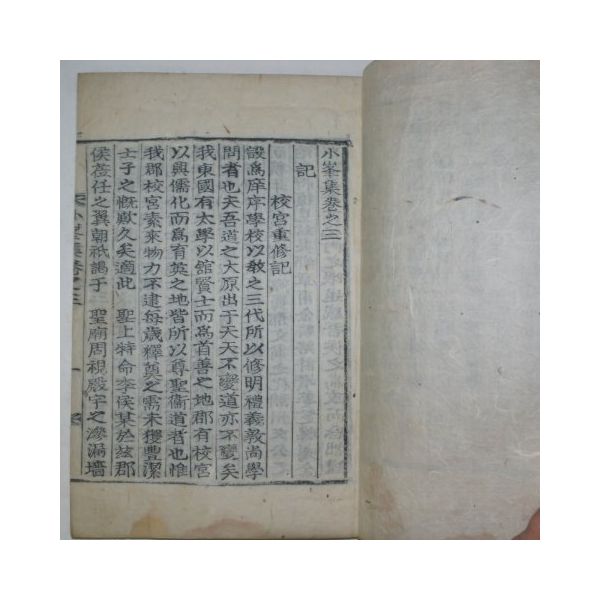 小峯集卷之三
記
校宮重修記
設爲庠序學校以敎之三代所以修明禮義敦尙學
問者也夫吾道之大原出于天天不變道亦不變矣
我東國有太學以舘賢士而爲首善之地郡有校宮
以興儒化而爲育英之地皆所以尊聖衞道者也惟
我郡校宮素來物力不逮每歲釋奠之需未獲豐潔
士子之慨歎久矣適此 聖上特命李侯某於玆郡
侯莅任之翼朝祇謁于 聖廟周視殿宇之滲漏墻
小峯集卷之三
一